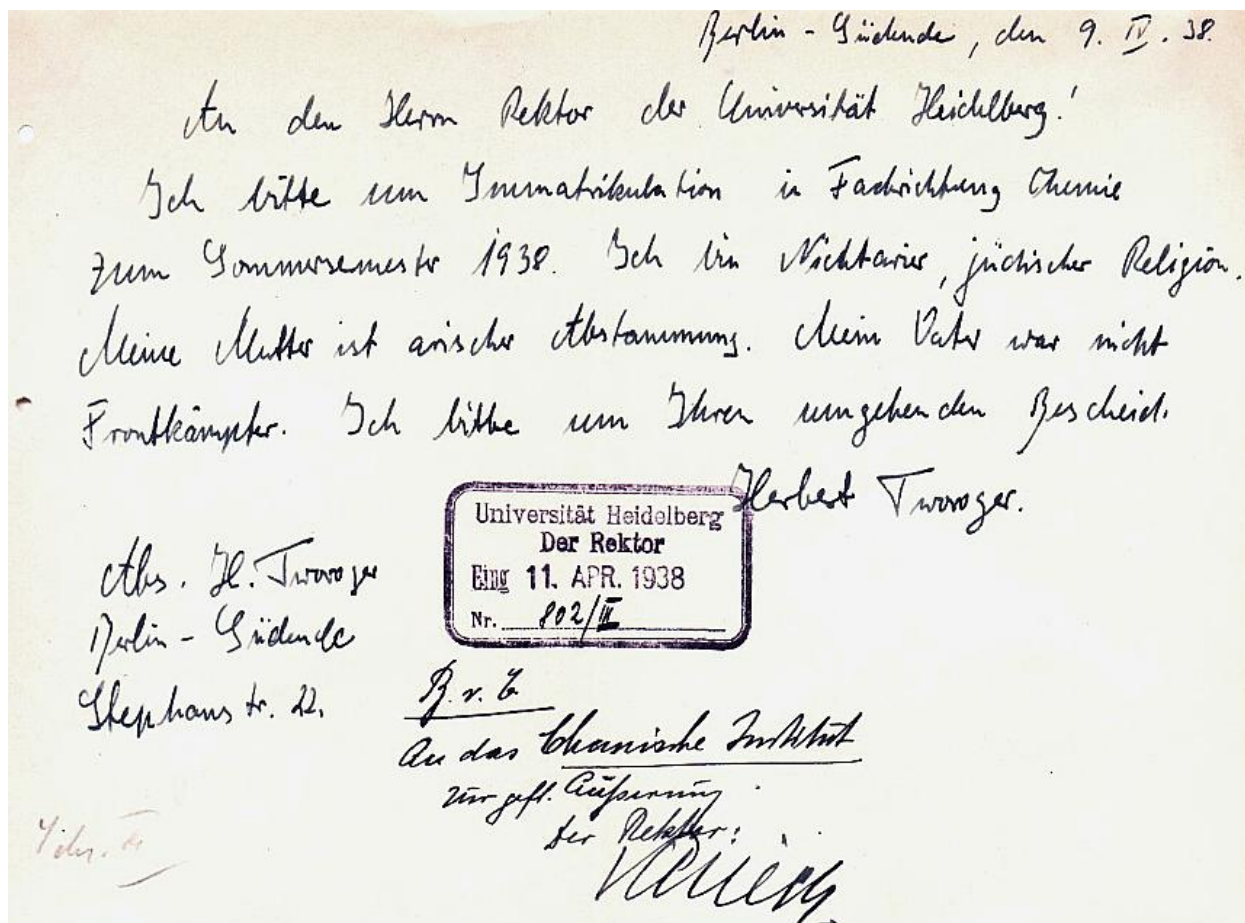 Berlin - Südende, den 9. IV. 38.
An den Herrn Rektor der Universität Heidelberg!
Ich bitte um Immatrikulation in Fachrichtung Chemie
zum Sommersemester 1938. Ich bin Nichtarier, jüdischer Religion.
Meine Mutter ist arischer Abstammung. Mein Vater war nicht
Frontkämpfer. Ich bitte um Ihren umgehenden Bescheid.
Herbert Tworoger.
Universität Heidelberg
Der Rektor
Eing 11. APR. 1938
Nr. 802/III
Abs. H. Tworoger
Berlin - Südende
Stephanstr. 22.
An das Chemische Institut
zur gefl. Äußerung.
Der Rektor: